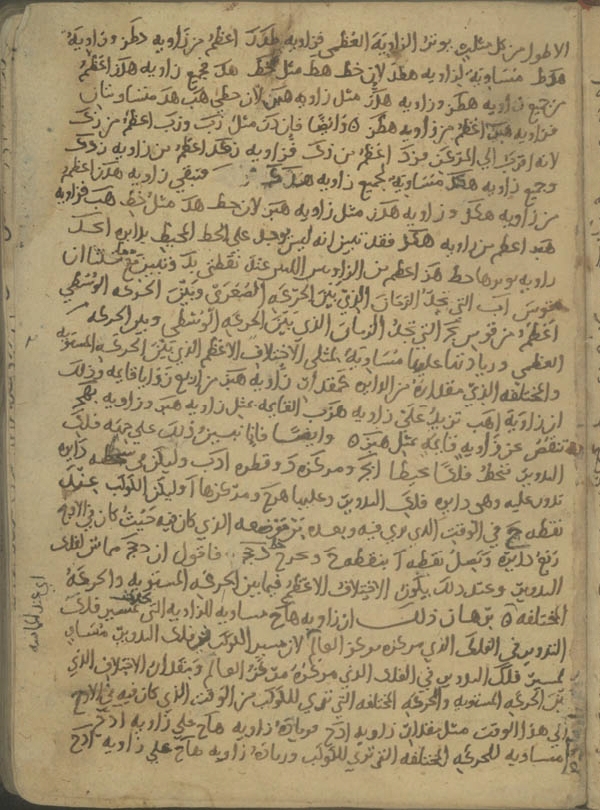 الاطول من كل مثلث يوتر الزاوية العظمى فزاويه هطد اعظم من زاويه حطز وزاويه
هدط مساويه لزاويه هطد لان خط هط مثل خط هد فجميع زاويه هدز اعظم
من جميع زاويه هطز وزاويه هدز مثل زاويه هبز لان خطي هب هد متساويان
فزاويه هبز اعظم من زاويه هطز وايضا فان دز مثل زب وزب اعظم من زك
لانه اقرب الى المركز فزد اعظم من زك فزاويه زكد اعظم من زاويه زدك
وجميع زاويه هكد مساويه لجميع زاويه هدك فتبقى زاويه هدز اعظم
من زاويه هكز وزاويه هدز مثل زاويه هبز لان خط هد مثل خط هب فزاويه
هبز اعظم من زاويه هكز فقد تبين انه ليس يوجد على الخط المحيط بدايره ابجد
زاويه يوترها خط هز اعظم من الزاويتين اللتين عند نقطتي ب د وتبين مع ذلك ان
قوس اب التي تحد الزمان الذي بين الحركه الصغرى وبين الحركه الوسطى
اعظم من قوس بج التي تحد الزمان الذي بين الحركه الوسطى وبين الحركه
العظمى وزيادتها عليها مساويه لمثلي الاختلاف الاعظم الذي بين الحركه المستويه
والمختلفه الذي مقداره من الدايره بمقدار زاويه هبز من اربع زوايا قايمه وذلك
ان زاويه اهب تزيد على زاويه هزب القايمه بمثل زاويه هبز وزاويه بهج
تنقص عن زاويه قايمه بمثل هبز وايضا فانا نبين ذلك على جهه فلك
التدوير فنخط فلكا محيطا ابج ومركزه د وقطره ادب وليكن محيطه دايره
تدور عليه وهي دايره فلك التدوير وعليها هرح ومركزها ا وليكن الكوكب عند
نقطه ح في الوقت الذي يرى فيه وبعده من موضعه الذي كان فيه حيث كان في الاوج
ربع دايره ونصل نقطه ا بنقطه ح ونخرج خط دحج فاقول ان دحج مماس لفلك
التدوير وعند ذلك يكون الاختلاف الاعظم فيما بين الحركه المستويه والحركه
المختلفه برهان ذلك ان زاويه هاح مساويه للزاويه التي بمسير فلك
التدوير في الفلك الذي مركزه مركز العالم لان مسير الكوكب في فلك التدوير مساو
لمسير فلك التدوير في الفلك الذي مركزه مركز العالم ومقدار الاختلاف الذي
بين الحركه المستويه والحركه المختلفه التي ترى للكوكب من الوقت الذي كان فيه في الاوج
الى هذا الوقت مثل مقدار زاويه ادح فزيادة زاويه هاح على زاويه ادح
مساويه للحركه المختلفه التي ترى للكوكب وزيادة زاويه هاح على زاويه ادح